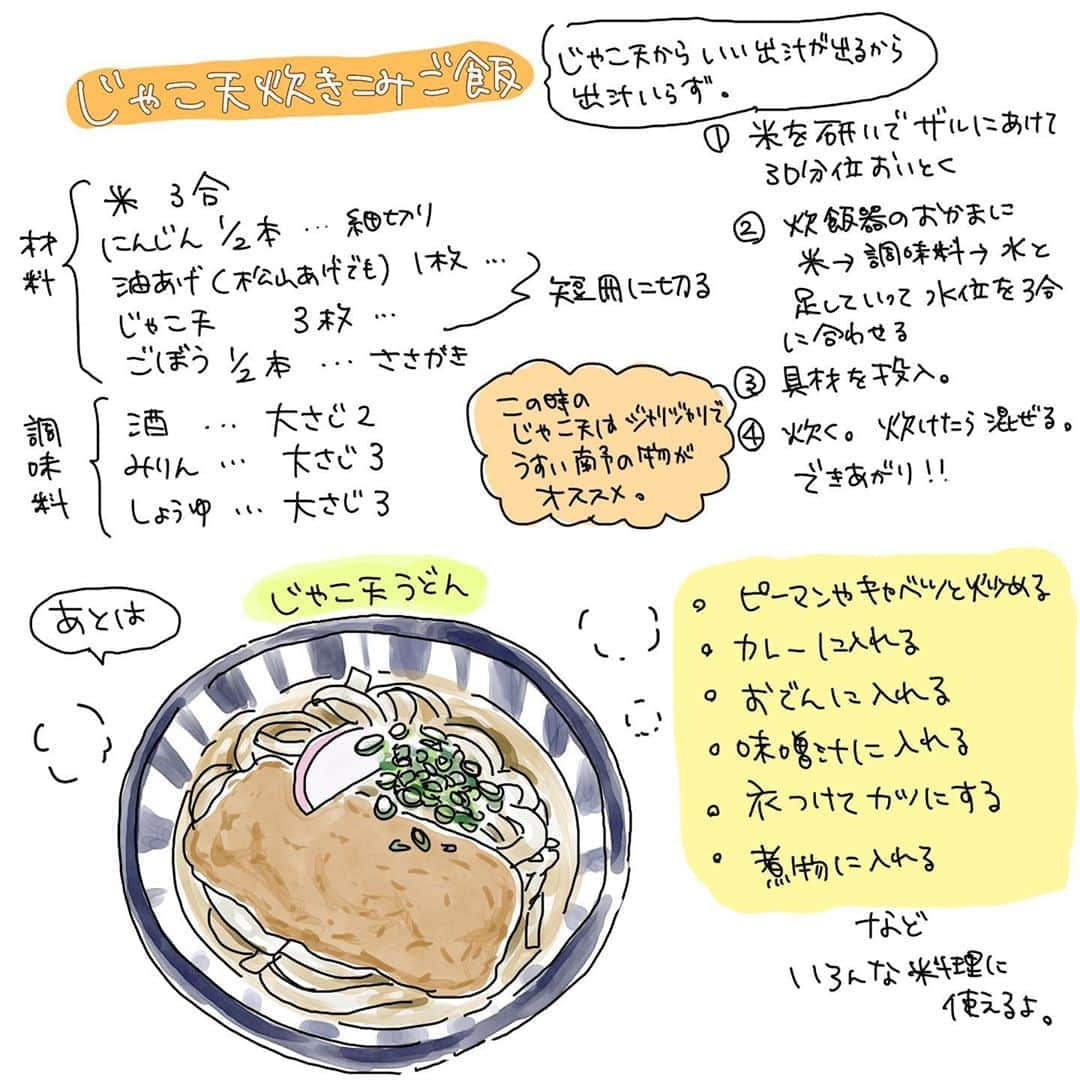 じゃこ天炊きこみご飯
じゃこ天から いい出汁が出るから
出汁いらず。
材料
米 3合
にんじん 1/2本 … 細切り
油あげ(松山あげでも) 1枚 …
じゃこ天 3枚 …
短冊に切る
ごぼう 1/2本 … ささがき
調味料
酒 … 大さじ2
みりん … 大さじ3
しょうゆ … 大さじ3
この時の
じゃこ天は ジャリジャリで
うすい南予の物が
オススメ。
① 米を研いで ザルにあけて
30分位おいとく
② 炊飯器のおかまに
米→調味料→水と
足していって 水位を3合
に合わせる
③ 具材を投入。
④ 炊く。炊けたら混ぜる。
できあがり!!
あとは
じゃこ天うどん
• ピーマンやキャベツと炒める
• カレーに入れる
• おでんに入れる
• 味噌汁に入れる
• 衣つけてカツにする
• 煮物に入れる
など
いろんな料理に
使えるよ。